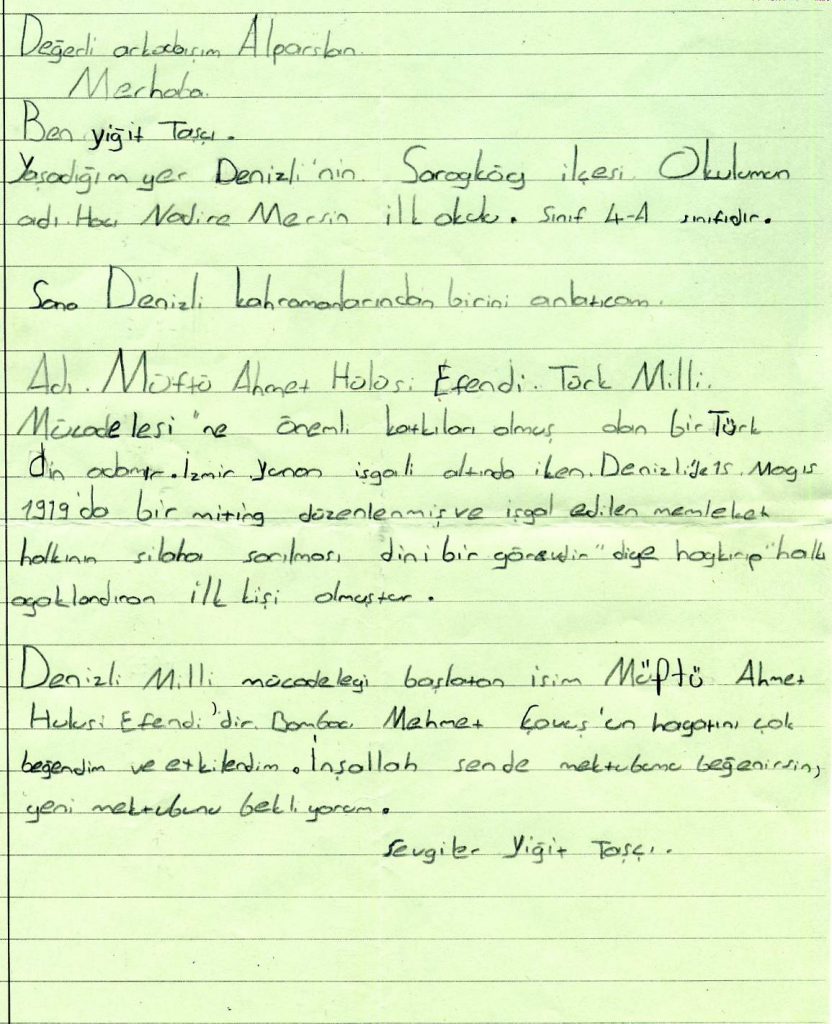 Değerli arkadaşım Alparslan.
Merhaba.
Ben yiğit Taşçı.
Yaşadığım yer Denizli'nin Sarayköy ilçesi Okulumun
adı Hacı Nadire Mersin ilkokulu. Sınıf 4-A sınıfıdır.
Sana Denizli kahramanlarından birini anlatıcam.
Adı. Müftü Ahmet Hülüsi Efendi. Türk Milli.
Mücadelesi'ne önemli katkıları olmuş olan bir Türk
din adamır. İzmir yunan işgali altında iken. Denizli'de 15. Mayıs
1919'da bir miting düzenlenmiş ve işgal edilen memleket
halkının silaha sarılması dini bir görevdir" diye haykırıp "halkı
ayaklandıran ilk kişi olmuştur.
Denizli Milli mücadeleyi başlatan isim Müftü Ahmet
Hulusi Efendi'dir. Bombacı Mehmet Çavuş'un hayatını çok
beğendim ve etkilendim. İnşallah sende mektubumu beğenirsin,
yeni mektubunu bekliyorum.
Sevgiler Yiğit Taşçı.